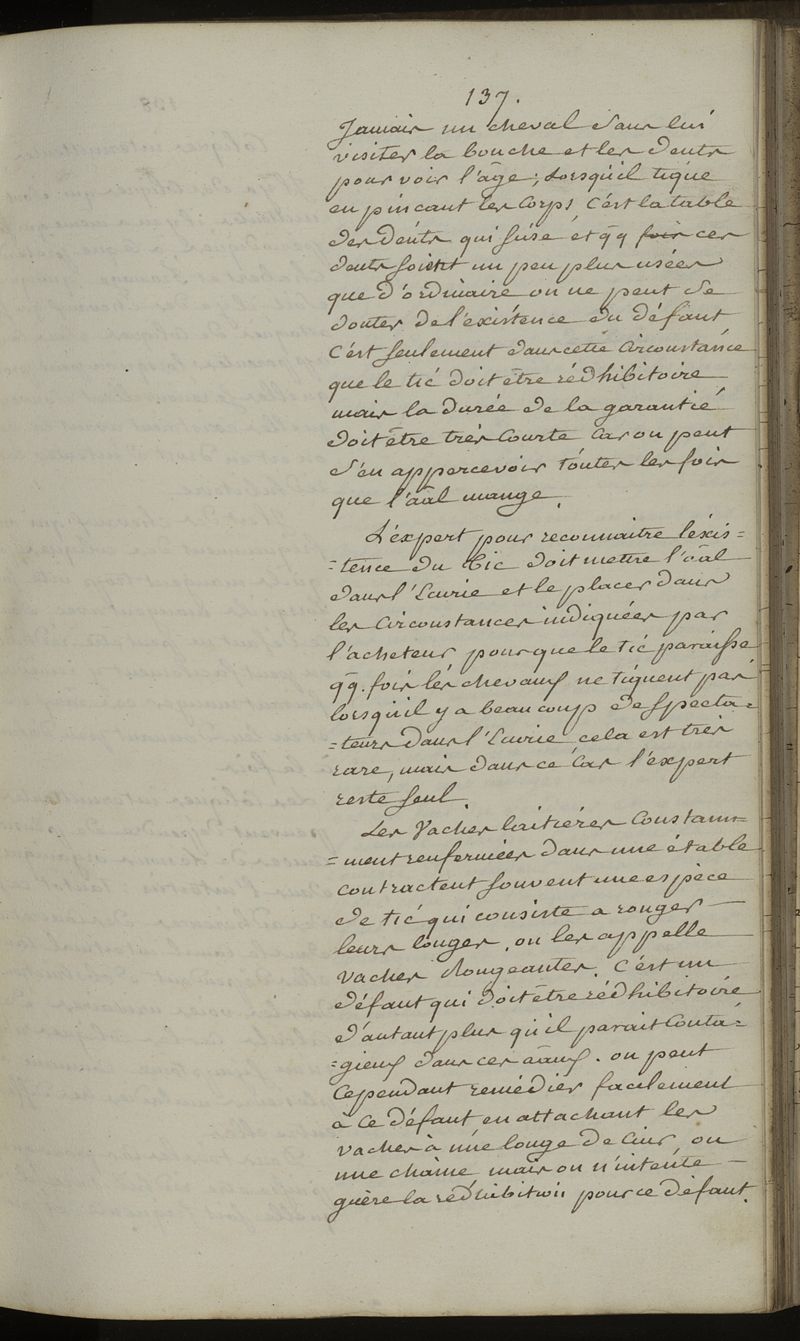 137.
Jamais un cheval sans lui
visiter la bouche et les dents
pour voir l'âge; Lorsqu'il tique
en pincant les Corps, C'est la table
des dents qui s'use et qq fois ces
dents soient un peu plus usées
que d'ordinaire on ne peut se
douter de l'existence du défaut
C'est seulement dans cette Circonstance
que le tic doit être rédhibitoire
mais la durée de la garantie
doit être très Courte Car on peut
s'en appercevoir toutes les fois
que l'āāl mange.
L'expert pour reconnaitre l'exis=
=tence du Tic doit mettre l'āāl
dans l'Ecurie et le placer dans
les Circonstances indiquées par
l'acheteur pour que le tic paraisse
qq. fois les chevaux ne tiquent pas
lorsqu'il y a beaucoup de specta=
=teurs dans l'Ecurie cela est très
rare, mais dans ce Cas l'expert
reste seul.
Les Vaches laitières Constam=
=ment renfermées dans une étable
contractent souvent une espèce
de tic qui consiste a ronger
leurs longes, on les appelle
vaches Rongeantes. C'est un
défaut qui doit être rédhibitoire
d'autant plus qu'il parait Conta=
=gieux dans ces āāux. on peut
Cependant remédier facilement
à Ce défaut en attachant les
vaches à une longe de Cuir, ou
une chaine mais on n'intente
guère la rédhibition pour ce défaut.